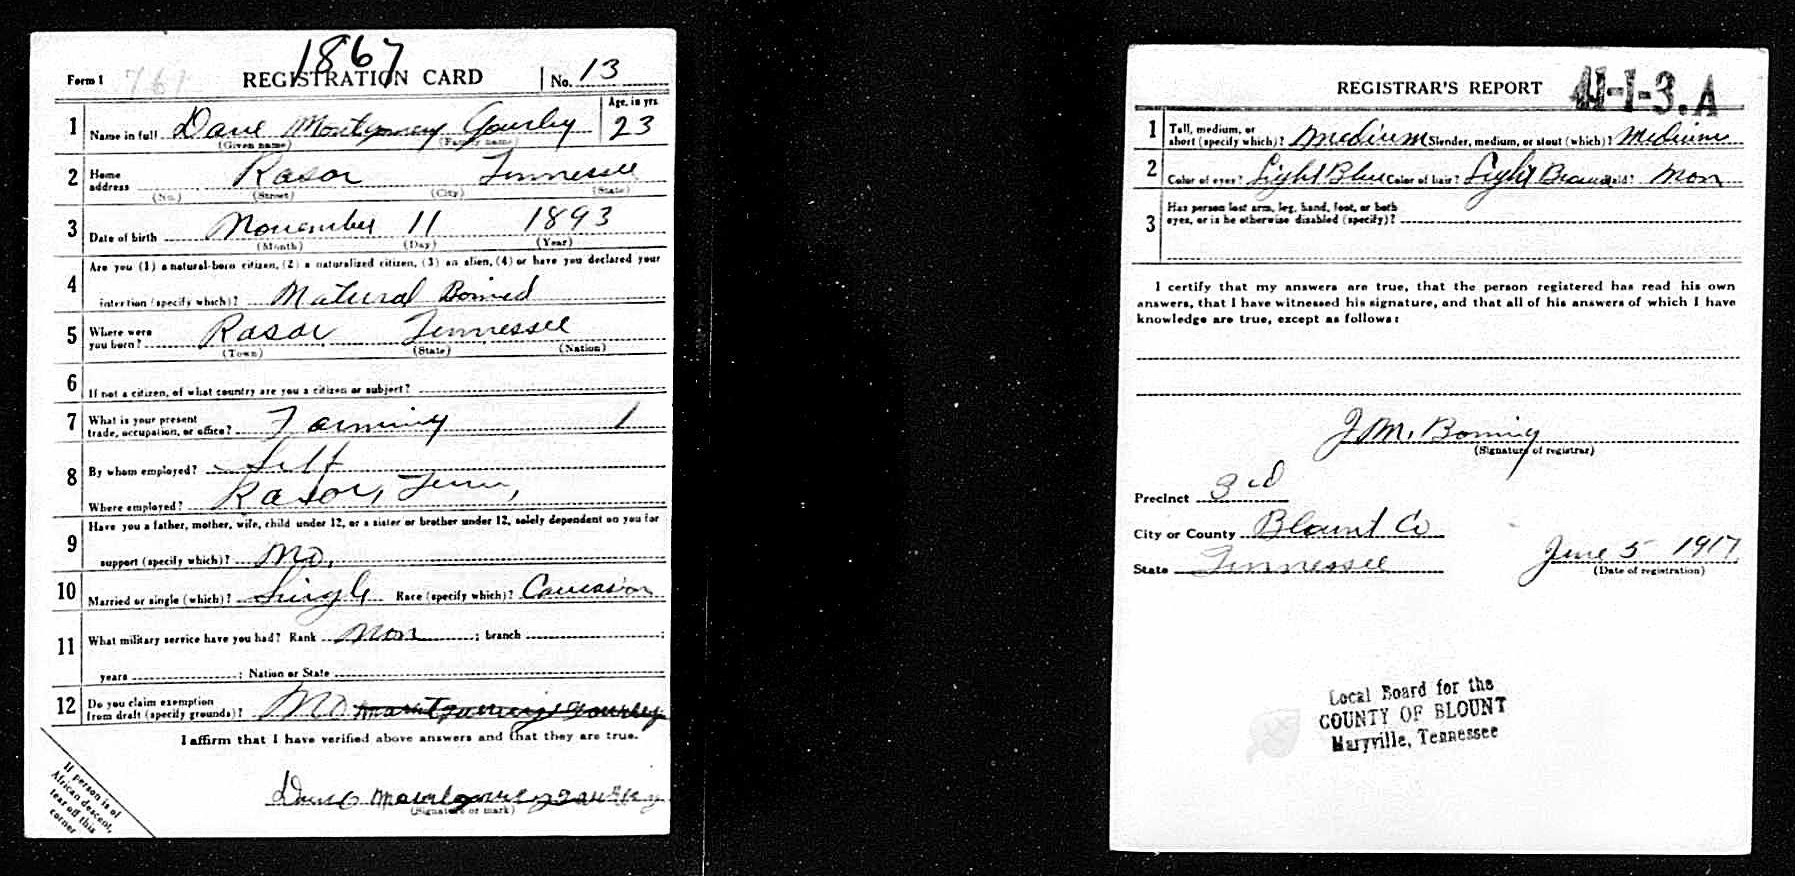 1867
Form 1 761 REGISTRATION CARD No. 13
1 Name in full Dave Montgomery Gourley Age, in yrs. 23
(Given name) (Family name)
2 Home address Rasor Tennessee
(No.) (Street) (City) (State)
3 Date of birth November 11 1893
(Month) (Day) (Year)
4 Are you (1) a natural-born citizen, (2) a naturalized citizen, (3) an alien, (4) or have you declared your
intention (specify which)? Natural Borned
5 Where were you born? Rasor Tennessee
(Town) (State) (Nation)
6 If not a citizen, of what country are you a citizen or subject?
7 What is your present trade, occupation, or office? Farming 1
8 By whom employed? Self
Where employed? Rasor, Tenn,
9 Have you a father, mother, wife, child under 12, or a sister or brother under 12, solely dependent on you for
support (specify which)? No,
10 Married or single (which)? Single Race (specify which)? Caucasion
11 What military service have you had? Rank Non ; branch ;
years ; Nation or State
12 Do you claim exemption from draft (specify grounds)? No
I affirm that I have verified above answers and that they are true.
Dave Montgomery Gourley
(Signature or mark)
If person is of
African descent,
tear off this
corner
REGISTRAR'S REPORT 41-1-3.A
1 Tall, medium, or short (specify which)? Medium Slender, medium, or stout (which)? Medium
2 Color of eyes? Light Blue Color of hair? Light Brown Bald? Non
3 Has person lost arm, leg, hand, foot, or both
eyes, or is he otherwise disabled (specify)?
I certify that my answers are true, that the person registered has read his own
answers, that I have witnessed his signature, and that all of his answers of which I have
knowledge are true, except as follows:
J. M. Boring
(Signature of registrar)
Precinct 3rd
City or County Blount Co
State Tennessee
June 5 1917
(Date of registration)
Local Board for the
COUNTY OF BLOUNT
Maryville, Tennessee